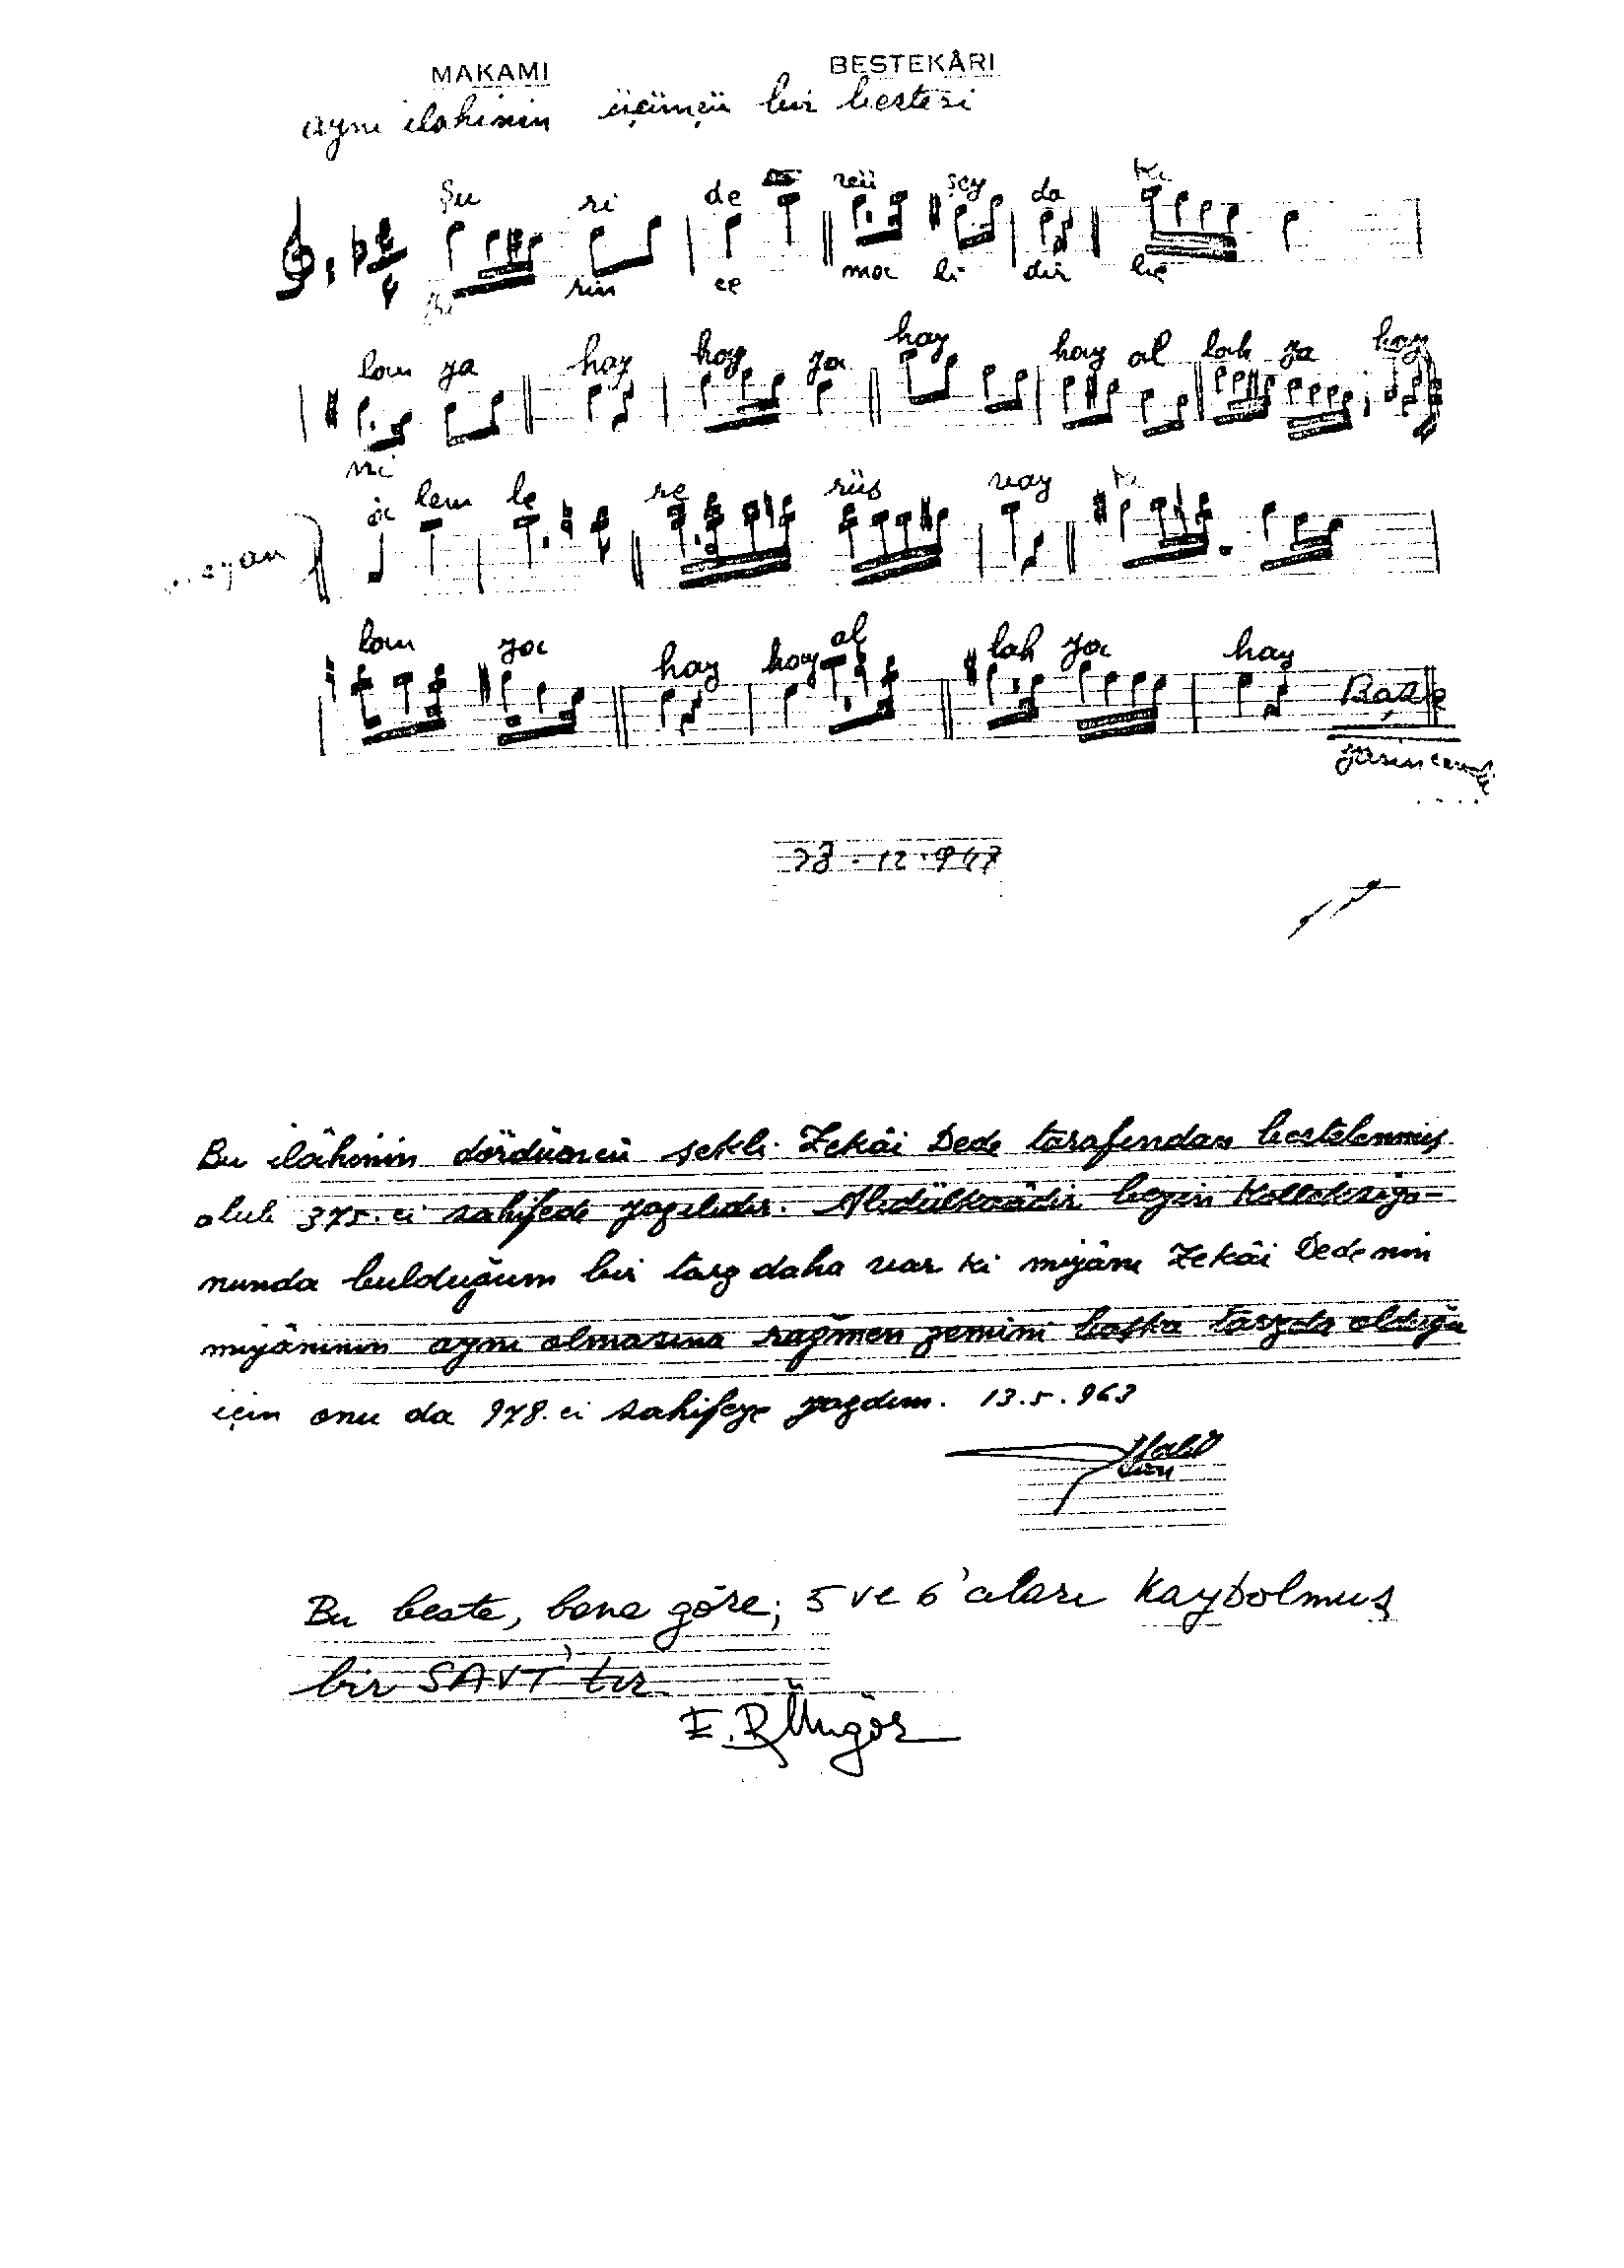 MAKAMI BESTEKÂRI
ayni ilahinin üçüncü bir bestesi
Şu ri de reü şey da Ki
rin ce ma bi dir be
lam ya hay hay ya hay hay al lah ya hay
ni
lem le re rüs vay
lam ya hay hay al lah ya hay
Başka
12.947
Bu ilâhinin dördüncü şekli Zekâi Dede tarafından bestelenmiş
olub 375.ci sahifede yazılıdır. Abdülkaadir beyin Kolleksiyo-
nunda bulduğum bir tarz daha var ki miyânı Zekâi Dedenin
miyânının aynı olmasına rağmen zemini başka tarzda olduğu
için onu da 978.ci sahifeye yazdım. 13.5.963
Halil
Can
Bu beste, bana göre; 5 ve 6'cıları kaybolmuş
bir SAVT'tır
E.R.Üngör